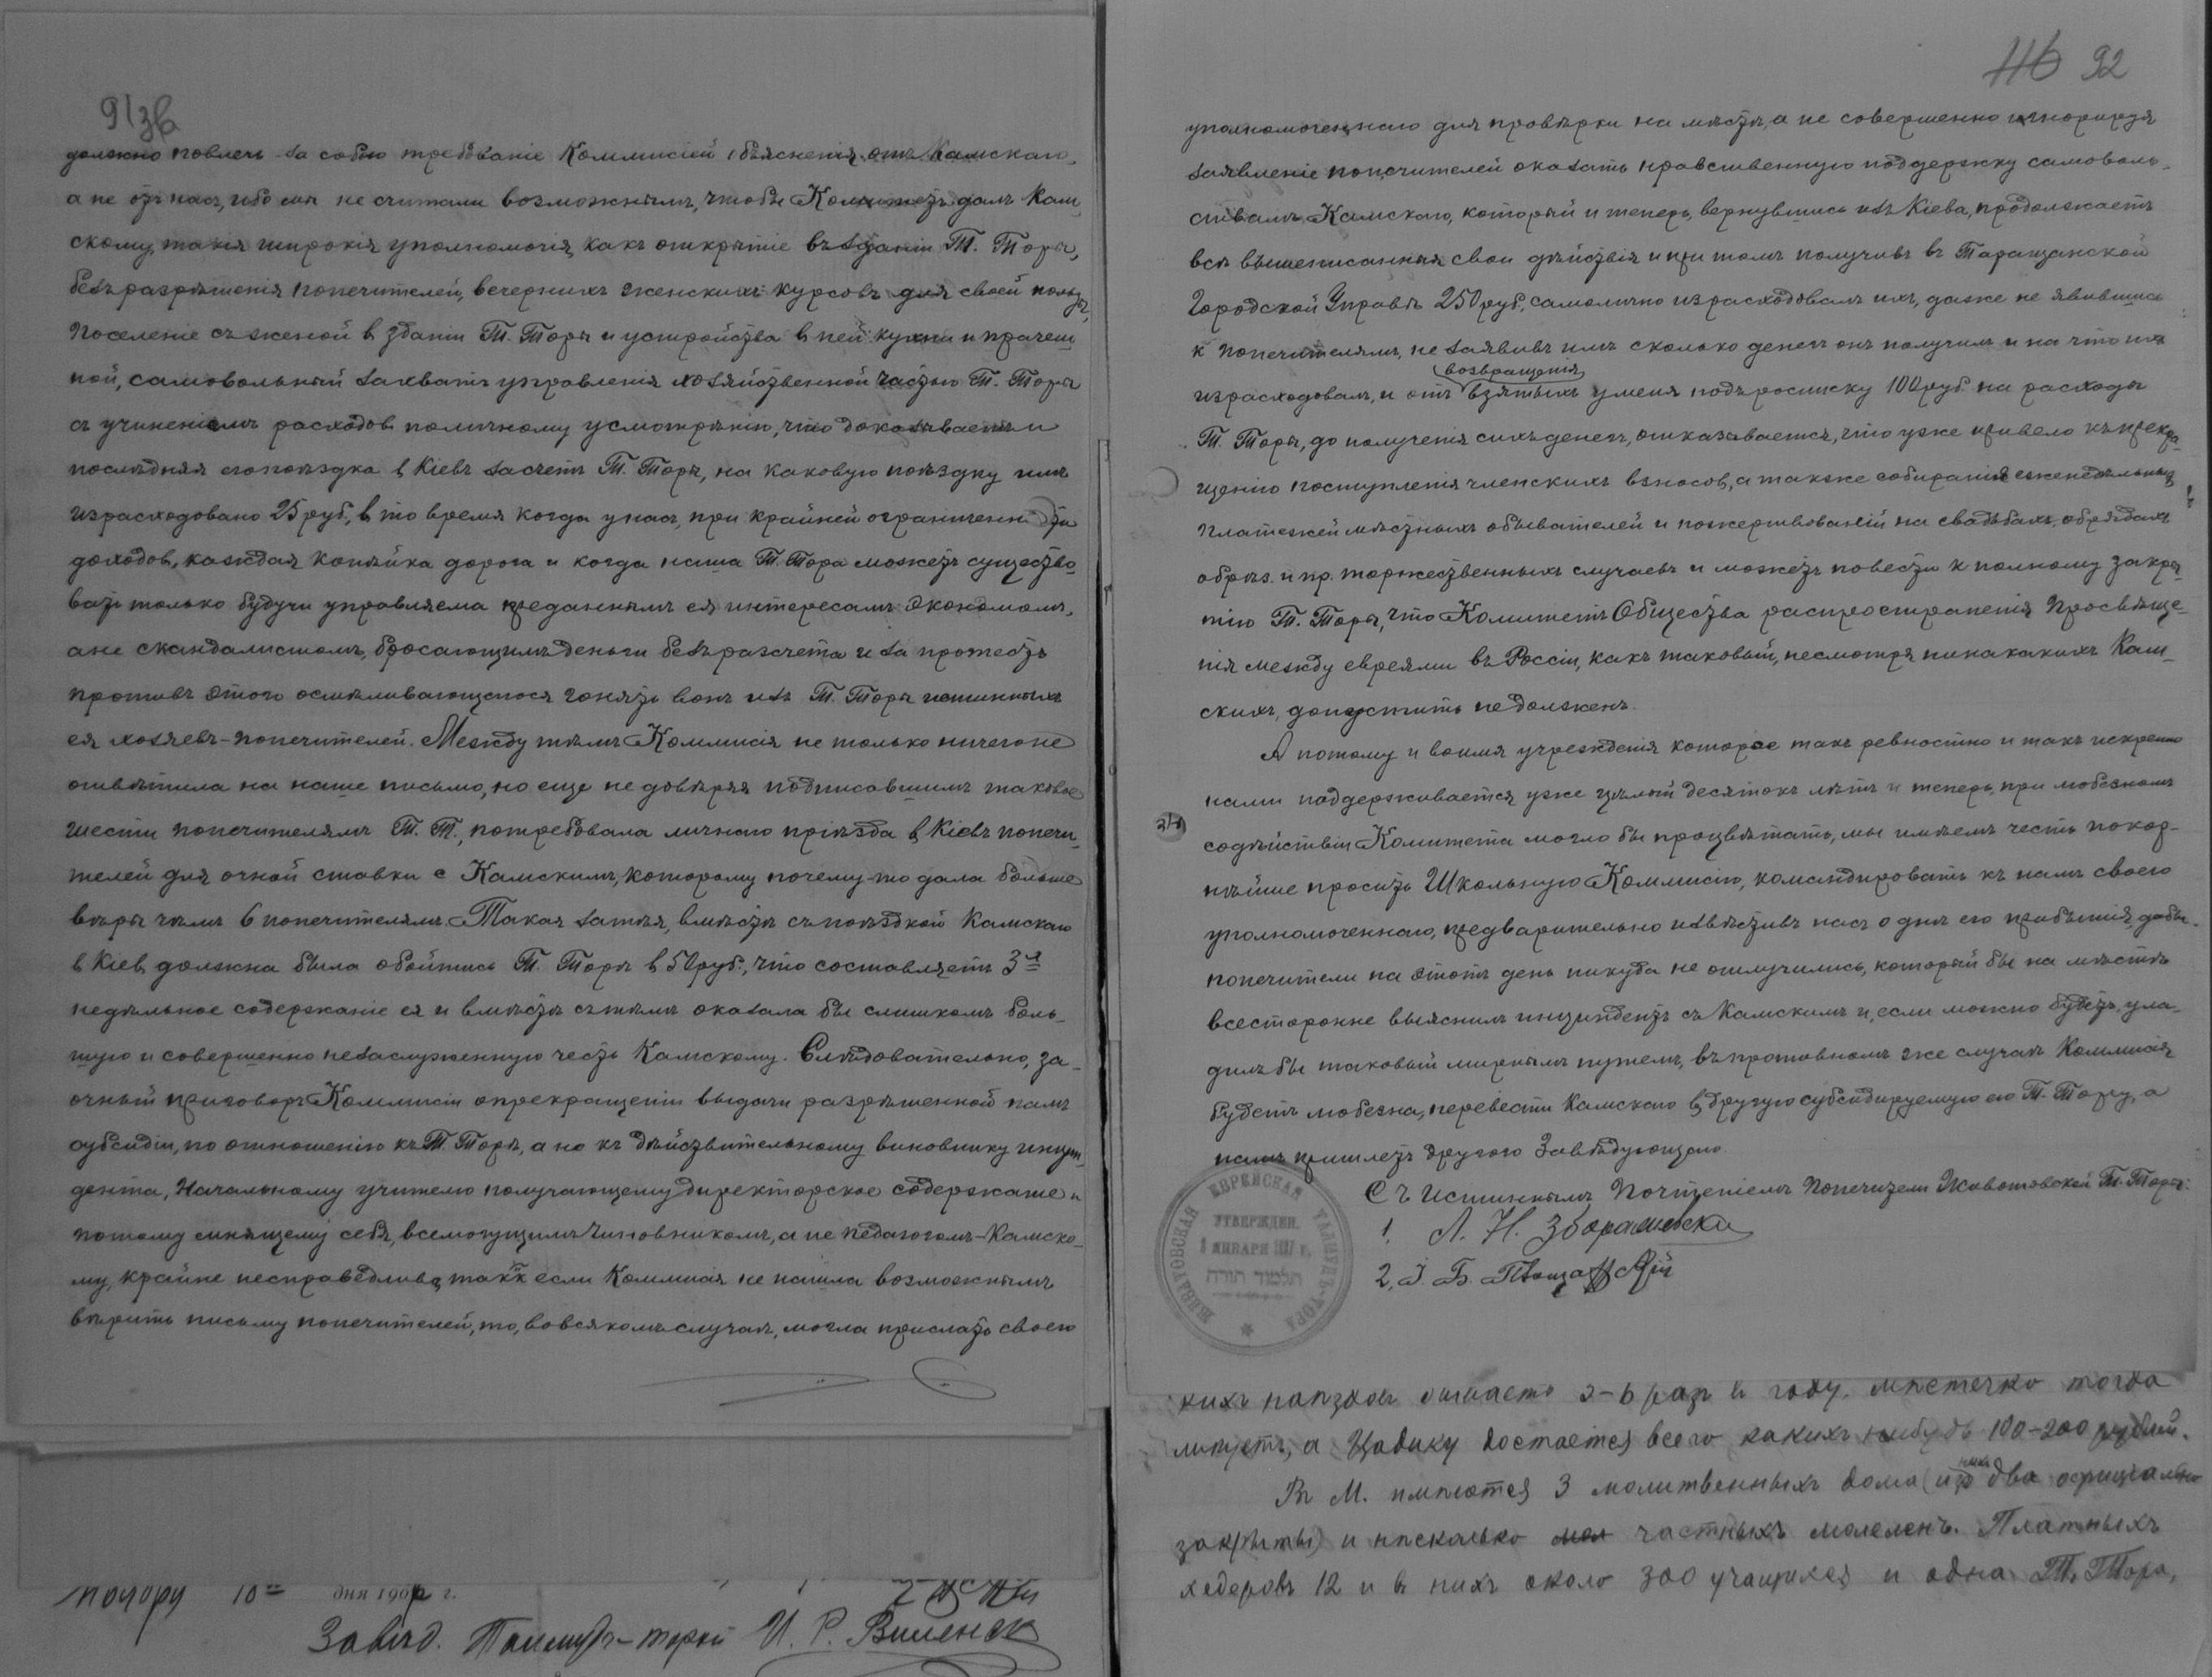 91 зв
должно повлечь за собою требованіе Коммисіей объясненія отъ Камскаго,
а не отъ насъ, ибо мы не считали возможнымъ, чтобы Комитетъ далъ Кам
скому такія широкія уполномочія, какъ открытіе въ зданіи Т. Торы,
безъ разрѣшенія попечителей, вечернихъ женскихъ курсовъ для своей пользы,
поселеніе съ женой в зданіи Т. Торы и устройства в ней кухни и прачеш
ной, самовольный захватъ управленія хозяйственной частью Т. Торы
съ учиненіемъ расходов по личному усмотрѣнію, что доказываетъ и
послѣдняя его поѣздка в Кіевъ за счетъ Т. Торы, на каковую поѣздку имъ
израсходовано 25 руб., в то время когда у насъ, при крайней ограниченности
доходов, каждая копѣйка дорога и когда наша Т. Тора можетъ существо
вать только будучи управляема преданнымъ ея интересамъ экономомъ,
а не скандалистомъ, бросающимъ деньги безъ разсчета и за протестъ
противъ этого осмѣливающегося гонять вонъ изъ Т. Торы истинныхъ
ея хозяевъ-попечителей. Между тѣмъ Коммисія не только ничего не
отвѣтила на наше письмо, но еще не довѣряя подписавшимъ таковое
шести попечителямъ Т. Т., потребовала личнаго пріѣзда в Кіевъ попечи
телей для очной ставки с Камскимъ, которому почему-то дала больше
вѣры чѣмъ 6 попечителямъ. Такая затѣя, вмѣстѣ съ поѣздкой Камскаго
в Кіев, должна была обойтись Т. Торѣ в 50 руб., что составляетъ 3х
недѣльное содержаніе ея и вмѣстѣ съ тѣмъ оказала бы слишкомъ боль-
шую и совершенно незаслуженную честь Камскому. Слѣдовательно, за-
очный приговоръ Коммисіи о прекращеніи выдачи разрѣшенной намъ
субсидіи, по отношенію къ Т. Торѣ, а но къ дѣйствительному виновнику инци
дента, Начальному учителю получающему директорское содержаніе и
потому мнящему себя всемогущимъ Чиновникомъ, а не педагогомъ-Камско-
му, крайне несправедливо, такъ какъ если Коммисія не нашла возможнымъ
вѣрить письму попечителей, то, во всякомъ случаѣ, могла прислать своего
116 92
уполномоченнаго для провѣрки на мѣстѣ, а не совершенно игнорируя
заявленіе попечителей оказать нравственную поддержку самоволь-
ствамъ Камскаго, который и теперь, вернувшись изъ Кіева, продолжаетъ
всѣ вышеписанныя свои дѣйствія и при томъ получивъ въ Таращанской
Городской Управѣ 250 руб., самолично израсходовалъ ихъ, даже не явившись
к попечителямъ, не заявивъ имъ сколько денегъ онъ получилъ и на что ихъ
израсходовалъ, и отъ возвращенія взятыхъ у меня подъ росписку 100 руб. на расходы
Т. Торы, до полученія сихъ денегъ, отказывается, что уже привело къ прекра
щенію поступленія членскихъ взносов, а также собиранія еженедѣльныхъ
платежей мѣстныхъ обывателей и пожертвованій на свадьбахъ, обрядахъ
обрѣз. и пр. торжественныхъ случаевъ и можетъ повести к полному закры
тію Т. Торы, что Комитетъ Общества распространенія Просвѣще-
нія между евреями въ Россіи, какъ таковый, несмотря ни на какихъ Кам-
скихъ, допустить не долженъ.
А потому и во имя учрежденія которое такъ ревностно и такъ искренно
нами поддерживается уже цѣлый десятокъ лѣтъ и теперь, при любезномъ
содѣйствіи Комитета могло бы процвѣтать, мы имѣемъ честь покор-
нѣйше просить Школьную Коммисію, командировать къ намъ своего
уполномоченнаго, предварительно извѣстивъ насъ о днѣ его прибытія, дабы
попечители на этотъ день никуда не отлучились, который бы на мѣстѣ
всесторонне выяснилъ инцидентъ съ Камскимъ и, если можно будетъ, ула-
дилъ бы таковый мирнымъ путемъ, въ противномъ же случаѣ Коммисія
будетъ любезна, перевести Камскаго в другую субсидируемую ею Т. Тору, а
намъ пришлетъ другого Завѣдующаго.
Съ истиннымъ Почтеніемъ Попечители Животовской Т. Торы:
1. Л. Н. Збарашевски
2, І. Б.
ЖИВАТОВСКАЯ ЕВРЕЙСКАЯ ТАЛМУДЪ-ТОРА
УТВЕРЖДЕН.
8 ЯНВАРЯ 1897 г.
תלמוד תורה
кихъ наѣздовъ бываетъ 5-6 разъ в году. мѣстечко тогда
а Цадику достается всего какихъ нибудь 100-200 рублей.
Въ М. имѣются 3 молитвенныхъ дома (изъ нихъ два офиціально
закрыты) и нѣсколько частныхъ молеленъ. Платныхъ
хедеровъ 12 и в нихъ около 300 учащихся и одна Т. Тора,
10 дня 190 г.
Завѣд. Талмудъ-торой И. Р. Виленск